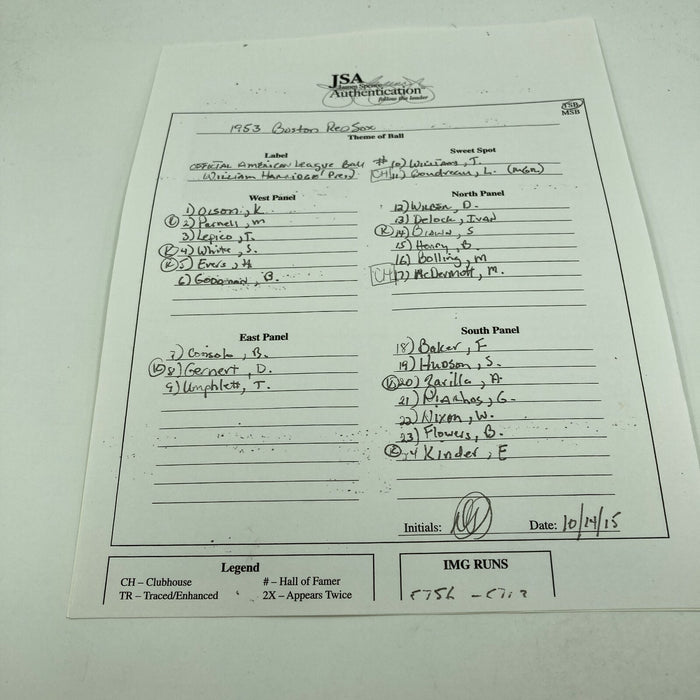 JSA
James Spence
Authentication
follow the leader
TSB
MSB
1953 Boston Red Sox
Theme of Ball
Label
Official American League Ball
William Harridge Pres)
Sweet Spot
# 10) Williams, T.
CH 11) Boudreau, L. (MGR)
West Panel
1) Olson, K
2) Parnell, M
3) Lepcio, T.
4) White, S.
5) Evers, H
6) Goodman, B.
North Panel
12) Wilber, D.
13) Delock, Ivan
14) Brown, S
15) Henry, B.
16) Bolling, M
CH 17) McDermott, M.
East Panel
7) Consolo, B.
8) Gernert, D.
9) Umphlett, T.
South Panel
18) Baker, F
19) Hudson, S.
20) Zarilla, A.
21) Niarhos, G.
22) Nixon, W.
23) Flowers, B.
24 Kinder, E
Initials:
Date: 10/14/15
Legend
CH – Clubhouse
# – Hall of Famer
TR – Traced/Enhanced
2X – Appears Twice
IMG RUNS